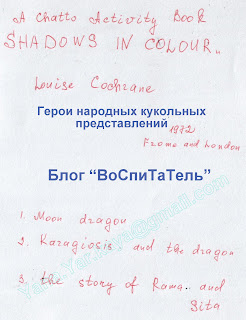 A Chatto Activity Book
SHADOWS IN COLOUR..
Louise Cochrane
Герои народных кукольных
представлений
1972
Frome and London
Блог “ВоСпиТаТель”
1. Moon dragon
2. Karagiosis and the dragon
3. the story of Rama.. and
Sita